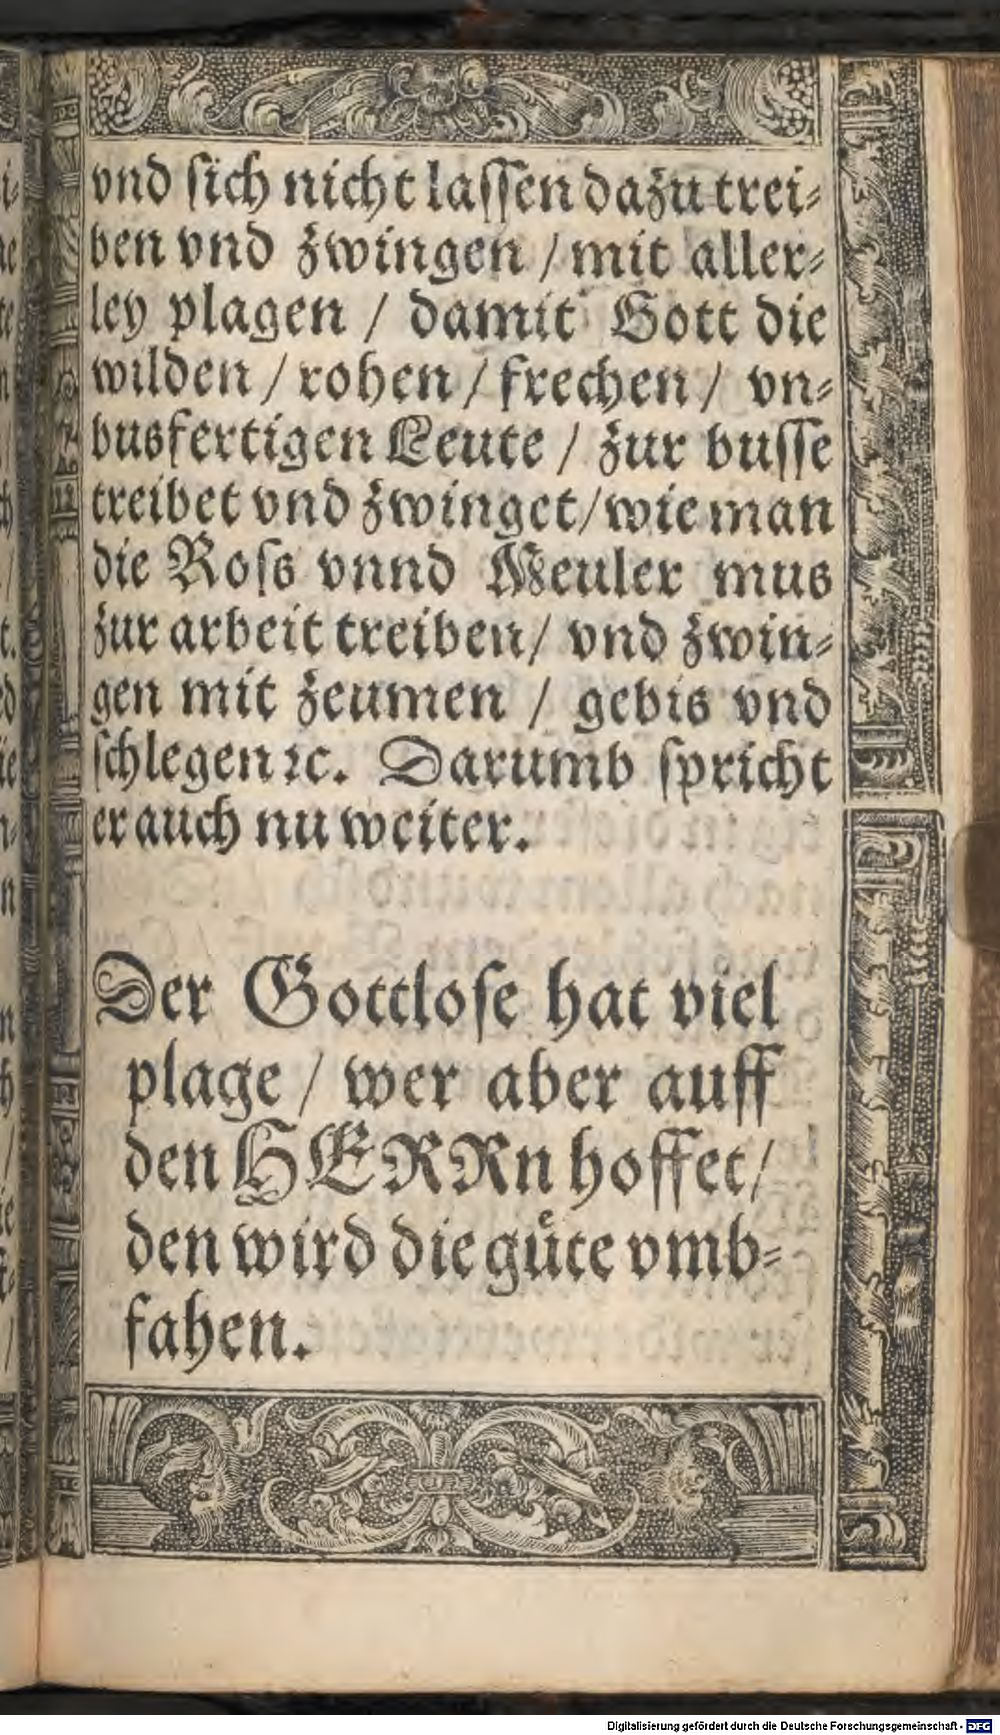 vnd ſich nicht laſſen dazu trei⸗
ben vnd zwingen / mit aller⸗
ley plagen / damit Gott die
wilden / rohen / frechen / vn⸗
busfertigen Leute / zur buſſe
treibet vnd zwinget / wie man
die Roſs vnnd Meuler mus
zur arbeit treiben / vnd zwin⸗
gen mit zeumen / gebis vnd
ſchlegen ꝛc. Darumb ſpricht
er auch nu weiter.
Der Gottloſe hat viel
plage / wer aber auff
den HERRn hoffet /
den wird die guͤte vmb⸗
fahen.
Digitalisierung gefördert durch die Deutsche Forschungsgemeinschaft - DFG